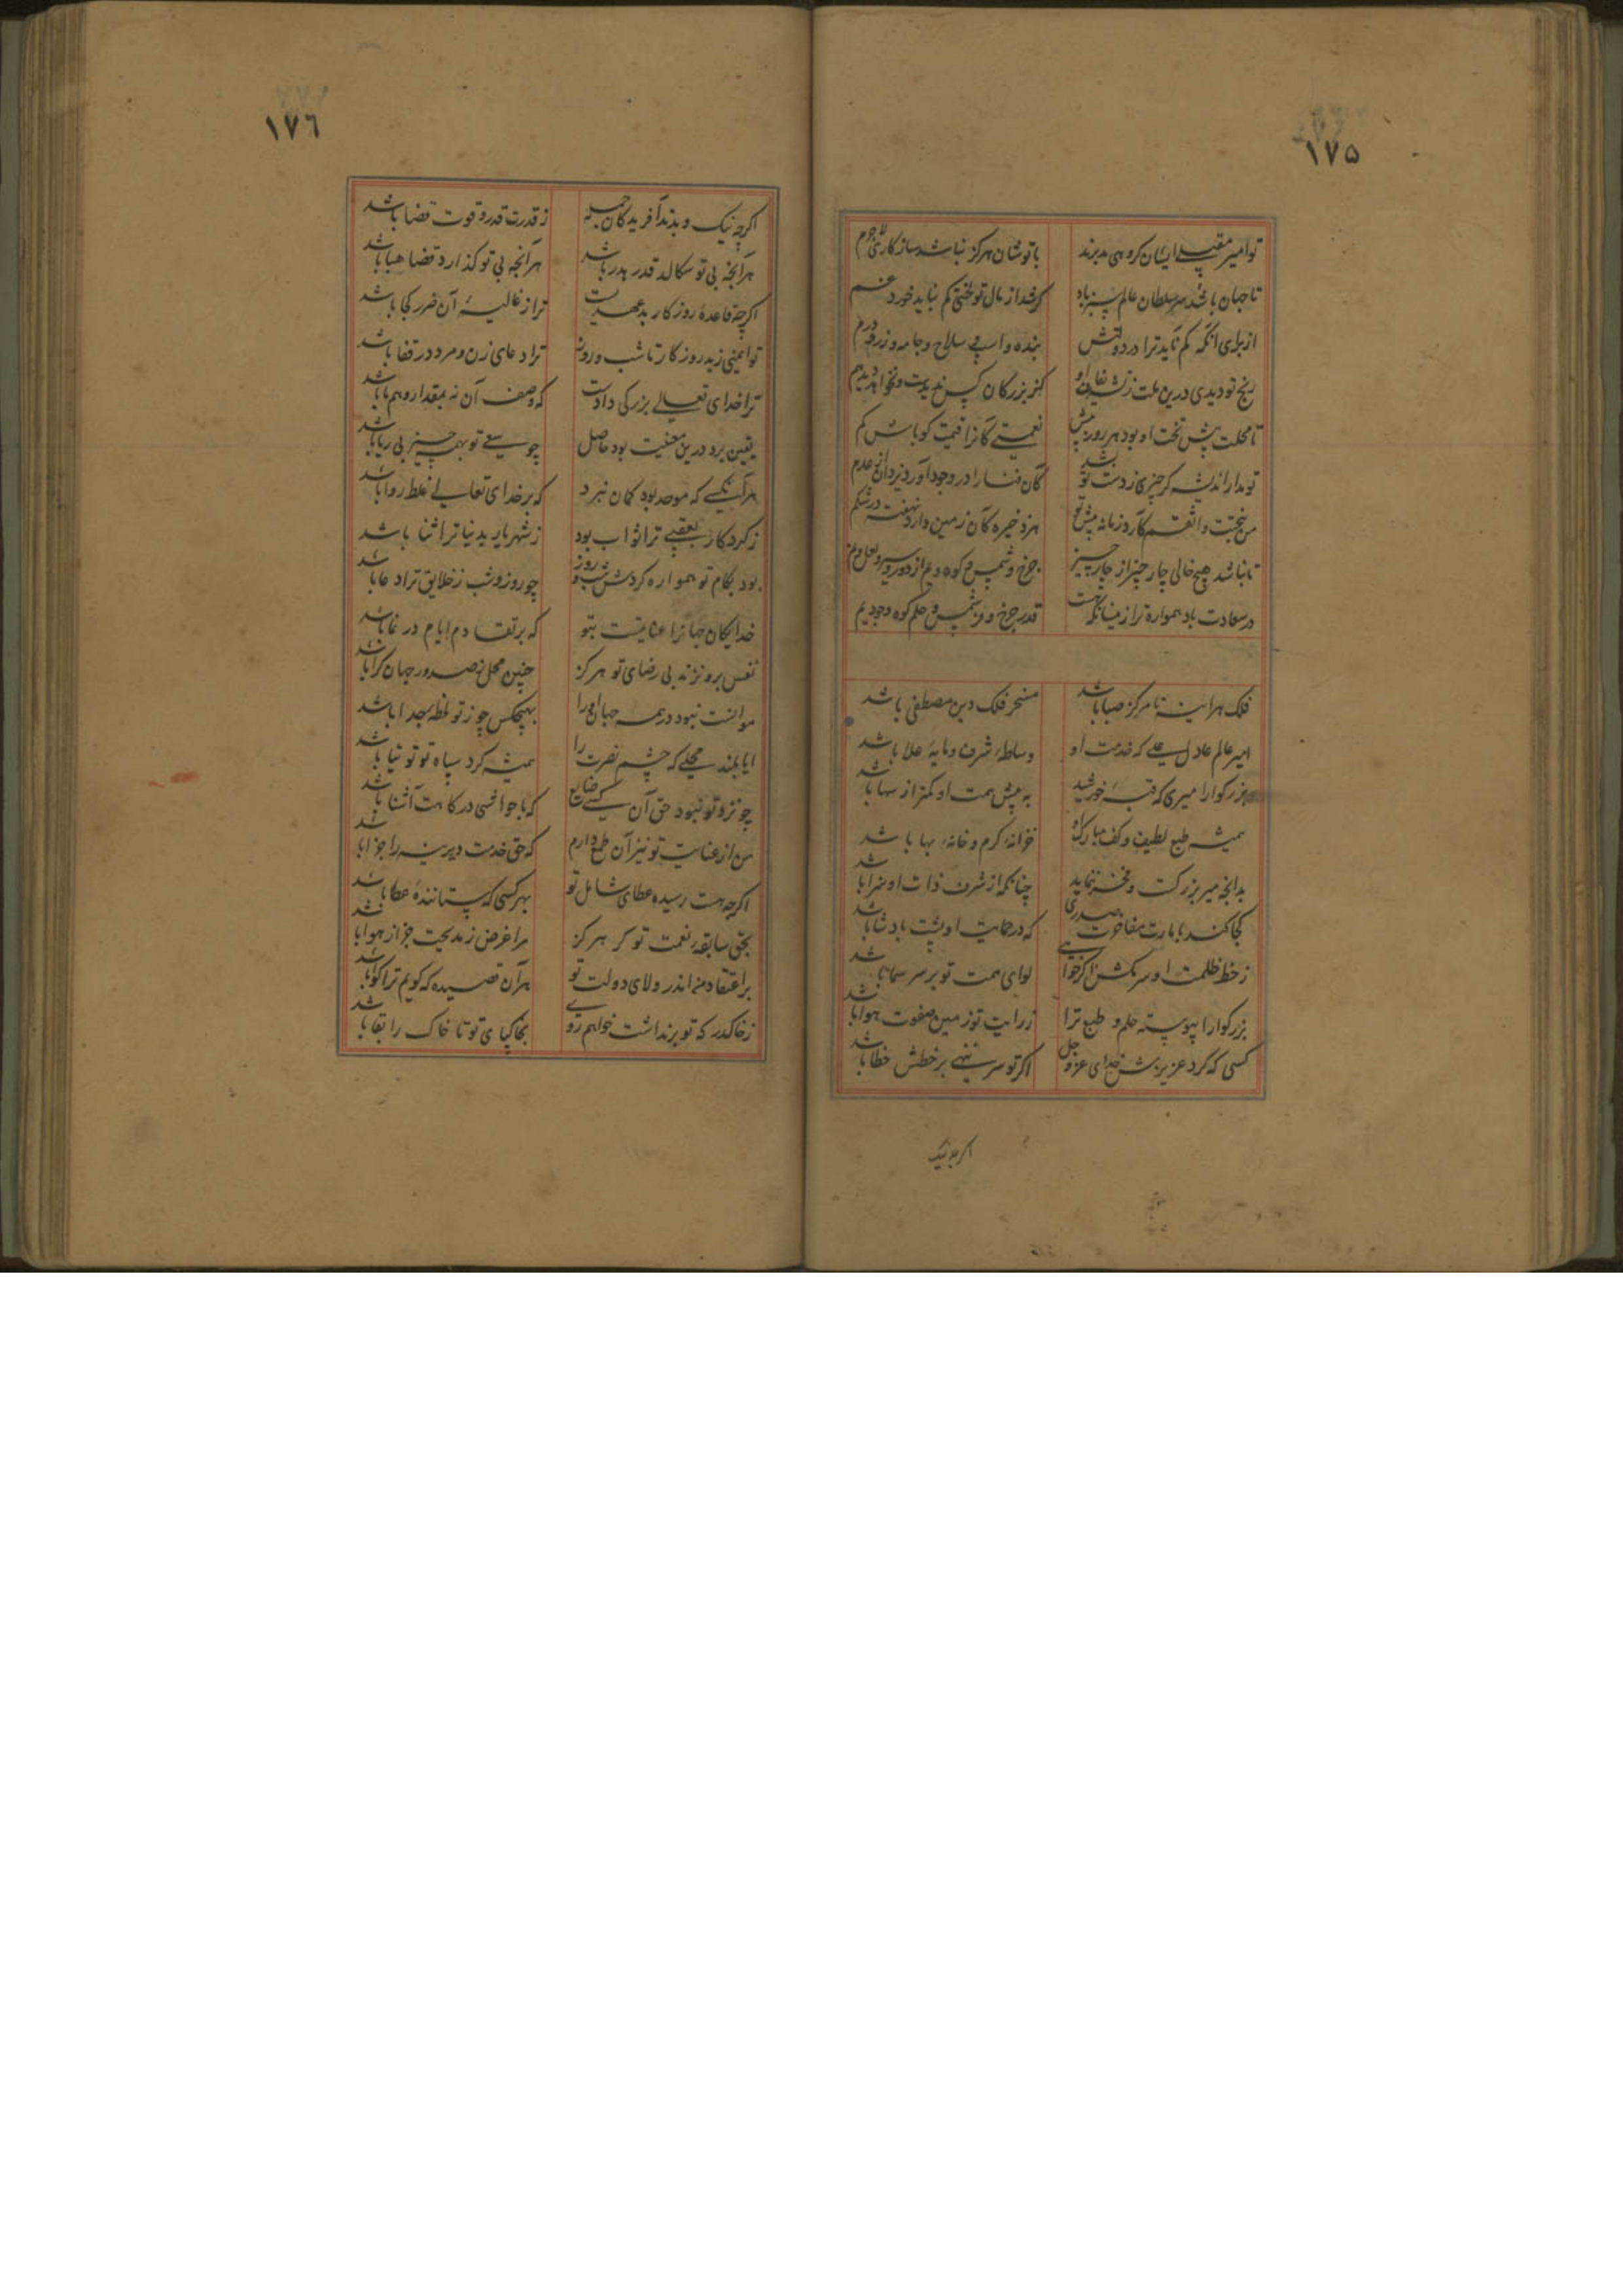 ١٧٥
تو امیر مقبلی ایشان گروهی مدبرند با تو شان هرگز نباشد سازگاری لاجرم
تا جهان باشد سر سلطان عالم سبز باد گر شد از مال تو لختی کم نباید خورد غم
از برای آنکه کم ناید ترا در دولتش بنده و اسپ و سلاح و جامه و زر و درم
رنج تو دیدی درین ملت ز بزرگان کس ندیدست و نخواهد دید هم
تا محلت پیش تخت او بود هر روز بیش نعمتی کانرا قیمت کو باش کم
تو مدار اندیشه گر چیزی ز دست تو بشد کان را در وجود آورد یزدان از عدم
من بجنت واثقم کارد زمانه پیش تو هر ذخیره کان زمین دارد نهفته در شکم
تا نباشد هیچ خالی چار چیز از چار چیز چرخ و شمس و کوه و یم از دور و سیر و لعل و نم
در سعادت باد همواره ترا زینسانکه هست قدر چرخ و شمس و حلم کوه و جود یم
فلک هر آینه تا مرکز صبا باشد مسخر فلک دین مصطفی باشد
امیر عالم عادل علی که خدمت او وساطهٔ شرف و مایهٔ علا باشد
بزرگوار امیری که قبهٔ خورشید به پیش همت او کمتر از سها باشد
همیشه طبع لطیف و کف مبارک او خزانهٔ کرم و خانهٔ بها باشد
بدانچه میر بزرگست و فخر ننماید چنانکه از شرف ذات او سزا باشد
کجا کند بامارت مفاخرت صدری که در حمایت او پشت پادشا باشد
ز خط او سر مکش اگر خواهی لوای همت تو بر سر سما باشد
بزرگوارا پیوسته حلم و طبع ترا زرانت تو زمین صفوت هوا باشد
کسی که کرد عزیزش خدای عز و جل اگر تو سر ننهی بر خطش خطا باشد
اگر چه نیک
١٧٦
اگر چه نیک و بدند آفریدگان جمله ز قدرت قدر و قوت قضا باشد
هر آنچه بی تو سگالد قدر هدر باشد هر آنچه بی تو گذارد قضا هبا باشد
اگر چه قاعدهٔ روزگار بد عهدیست ترا ز غالیهٔ آن ضرر کجا باشد
تو ایمنی ز بد روزگار تا شب و روز ترا دعای زن و مرد در قفا باشد
ترا خدای تعالی بزرگی دادست که وصف آن نه بمقدار وهم ما باشد
یقین برد درین معنیت بود حاصل چو سعی تو بهمه چیز بی ریا باشد
هر آنکسی که موحد بود گمان نبرد که بر خدای تعالی غلط روا باشد
ز کردگار بعقبی ترا ثواب بود ز شهریار بدنیا ترا ثنا باشد
بود بکام تو همواره گردش شب و روز چو روز و شب ز خلایق ترا دعا باشد
خدایگان جهانرا عنایتست بتو که بر تقادم ایام در نما باشد
نفس برو نزند بی رضای تو هرگز چنین محل ز صدور جهان کرا باشد
موانست نبود در همه جهان او را بهیچکس چو ز تو لحظهٔ جدا باشد
ایا بلند محلی که چشم نصرت را همیشه گرد سپاه تو توتیا باشد
چو نزد تو نبود حق آن کسی ضایع که با حواشی درگاهت آشنا باشد
من از عنایت تو نیز آن طمع دارم که حق خدمت دیرینه را جزا باشد
اگر چه هست رسیده عطای شامل تو بهر کسی که ستانندهٔ عطا باشد
بحق سابقه نعمت تو گر هرگز مرا غرض ز مدیحت جز از هوا باشد
بر اعتقاد من اندر ولای دولت تو هر آن قصیده که گویم ترا گوا باشد
ز خاکدر که تو برنداشت خواهم روی بخاکپای تو تا خاک را بقا باشد